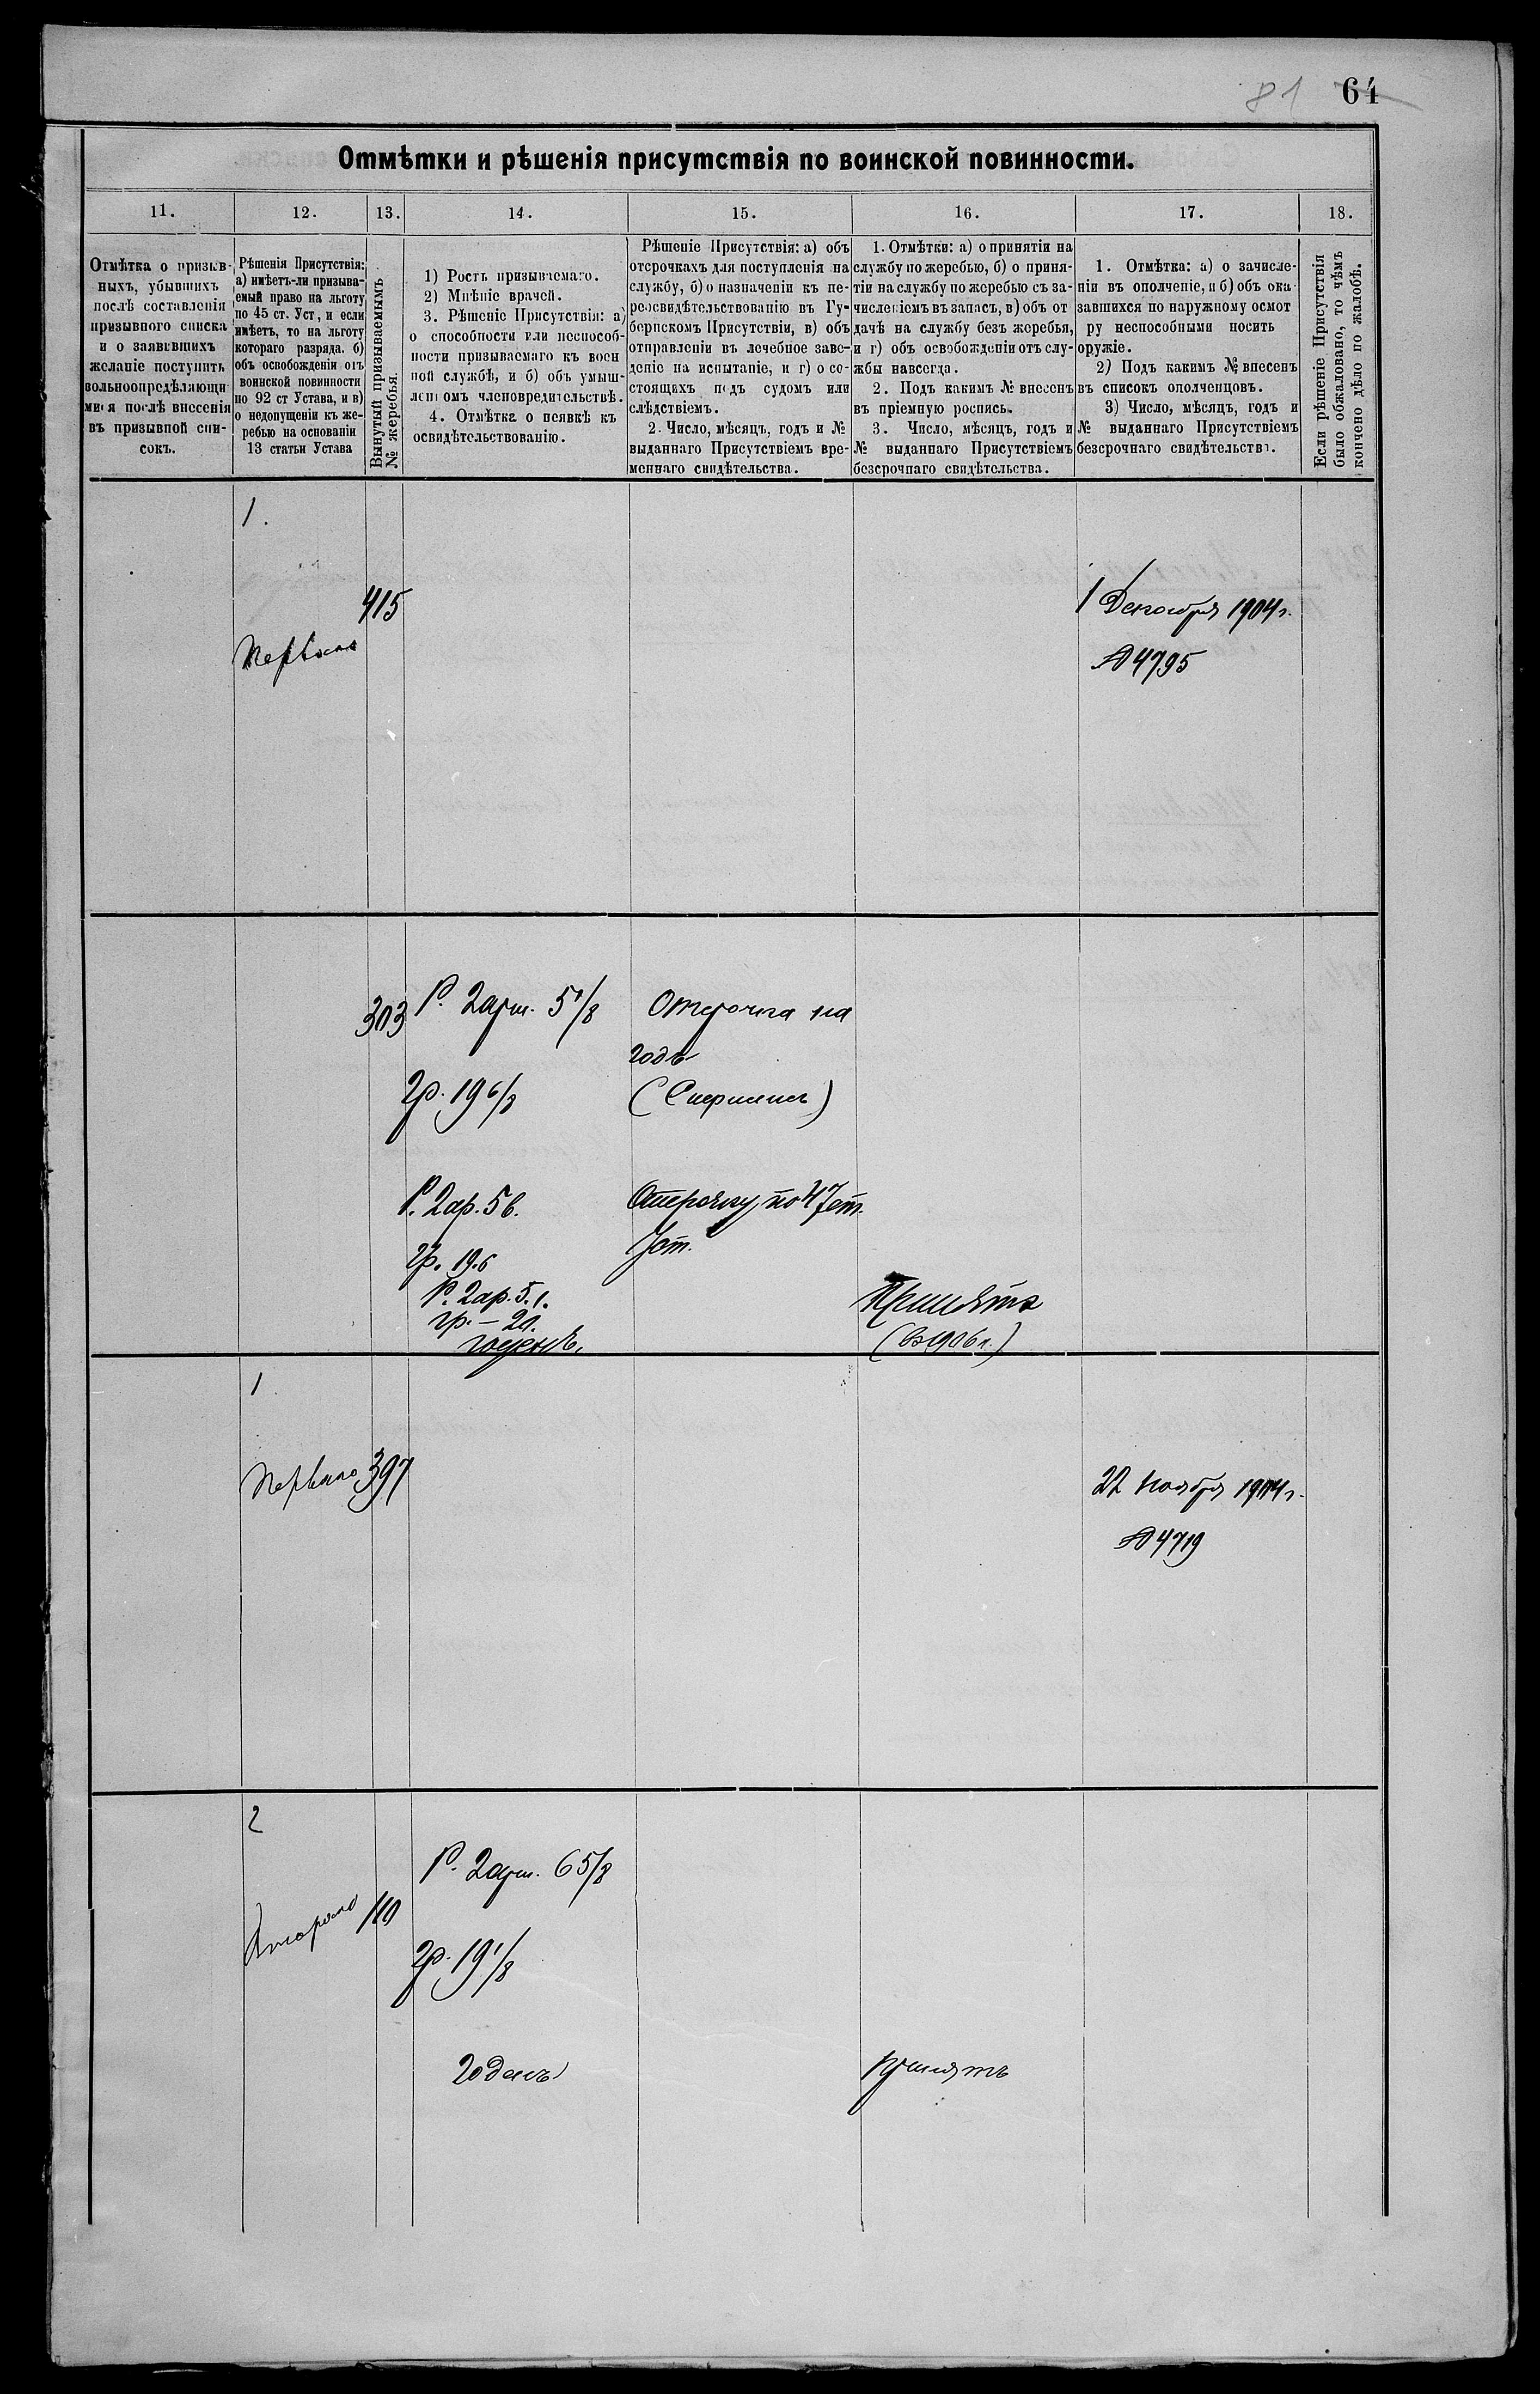 81 64
Отмѣтки и рѣшенія присутствія по воинской повинности.
11. 12. 13. 14. 15. 16. 17. 18.
Отмѣтка о призыв-
ныхъ, убывшихъ
послѣ составленія
призывного списка
и о заявившихъ
желаніе поступить
вольноопредѣляющи
мися послѣ внесенія
въ призывной спи-
сокъ.
Рѣшенія Присутствія:
а) имѣетъ-ли призыва-
емый право на льготу
по 45 ст. Уст, и если
имѣетъ, то на льготу
котораго разряда. б)
объ освобожденіи отъ
воинской повинности
по 92 ст Устава, и в)
о недопущеніи къ же-
ребью на основаніи
13 статьи Устава
Вынутый призываемымъ
№ жеребья.
1) Ростъ призываемаго.
2) Мнѣніе врачей.
3. Рѣшеніе Присутствія: а)
о способности или неспособ-
ности призываемаго къ воен
ной службѣ, и б) объ умыш-
ленномъ членовредительствѣ.
4. Отмѣтка о неявкѣ къ
освидѣтельствованію.
Рѣшеніе Присутствія: а) объ
отсрочкахъ для поступленія на
службу, б) о назначеніи къ пе-
реосвидѣтельствованію въ Гу-
бернскомъ Присутствіи, в) объ
отправленіи въ лечебное заве-
деніе на испытаніе, и г) о со-
стоящихъ подъ судомъ или
слѣдствіемъ.
2. Число, мѣсяцъ, годъ и №
выданнаго Присутствіемъ вре-
меннаго свидѣтельства.
1. Отмѣтки: а) о принятіи на
службу по жеребью, б) о приня-
тіи на службу по жеребью съ за-
численіемъ въ запасъ, в) объ от
дачѣ на службу безъ жеребья,
и г) объ освобожденіи отъ слу-
жбы навсегда.
2. Подъ какимъ № внесенъ
въ пріемную роспись.
3. Число, мѣсяцъ, годъ и
№ выданнаго Присутствіемъ
безсрочнаго свидѣтельства.
1. Отмѣтка: а) о зачисле-
ніи въ ополченіе, и б) объ ока
завшихся по наружному осмот
ру неспособными носить
оружіе.
2) Подъ какимъ № внесенъ
въ списокъ ополченцовъ.
3) Число, мѣсяцъ, годъ и
№ выданнаго Присутствіемъ
безсрочнаго свидѣтельства.
Если рѣшеніе Присутствія
было обжаловано, то чѣмъ
кончено дѣло по жалобѣ.
1.
415
Перваго
1 Декабря 1904 г.
№ 4795
303 Р. 2 арш. 5 1/8 Отсрочка на
годъ
гр. 19 6/8
Р. 2 ар. 5 в. Отсрочку по 47 ст.
Уст.
гр. 19.6
Р. 2 ар. 5. 1.
гр. – 20.
годенъ.
Принятъ
(въ 1906 г.)
1
Перваго 397
22 Ноября 1904 г.
№ 4719
2
Р. 2 арш. 6 5/8
Второго 110
гр. 19 1/8
годенъ принятъ